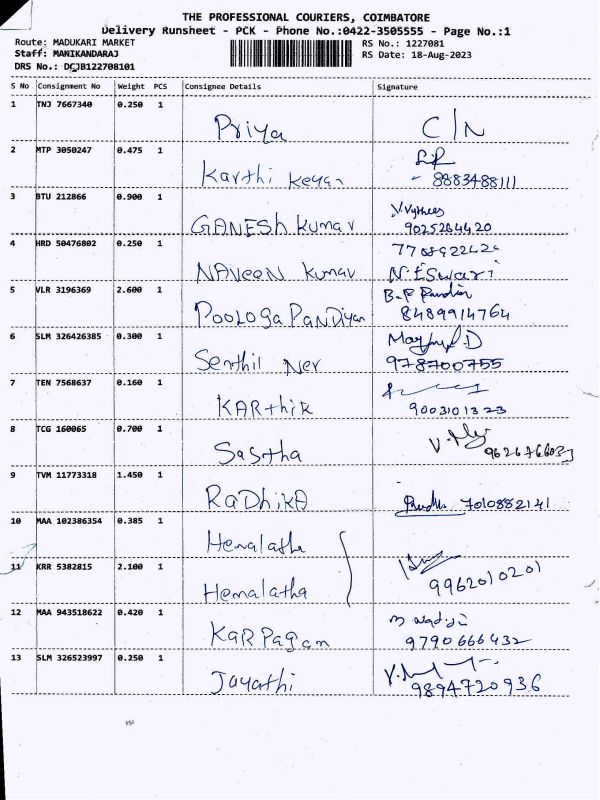 THE PROFESSIONAL COURIERS, COIMBATORE
Delivery Runsheet - PCK - Phone No.:0422-3505555 - Page No.:1
Route: MADUKARI MARKET RS No.: 1227081
Staff: MANIKANDARAJ RS Date: 18-Aug-2023
DRS No.: DCJB122708101
S No Consignment No Weight PCS Consignee Details Signature
1 TNJ 7667340 0.250 1
Priya C/N
2 MTP 3050247 0.475 1
Karthi Keyan 8883488111
3 BTU 212866 0.900 1
GANESh Kumar 9025284420
4 HRD 50476802 0.250 1
NAVeeN Kumar N.ESwari
5 VLR 3196369 2.600 1
PooLoga PANDiyan 8489914764
6 SLM 326426385 0.300 1
Senthil Ner 978700755
7 TEN 7568637 0.160 1
KARthiK 9003101323
8 TCG 160065 0.700 1
Sastha
9 TVM 11773318 1.450 1
RaDhiKA 7010882141
10 MAA 102386354 0.385 1
Hemalatha
11 KRR 5382815 2.100 1
Hemalatha 9962010201
12 MAA 943518622 0.420 1
KaRPagan 9790666432
13 SLM 326523997 0.250 1
Jayathi 9894720936